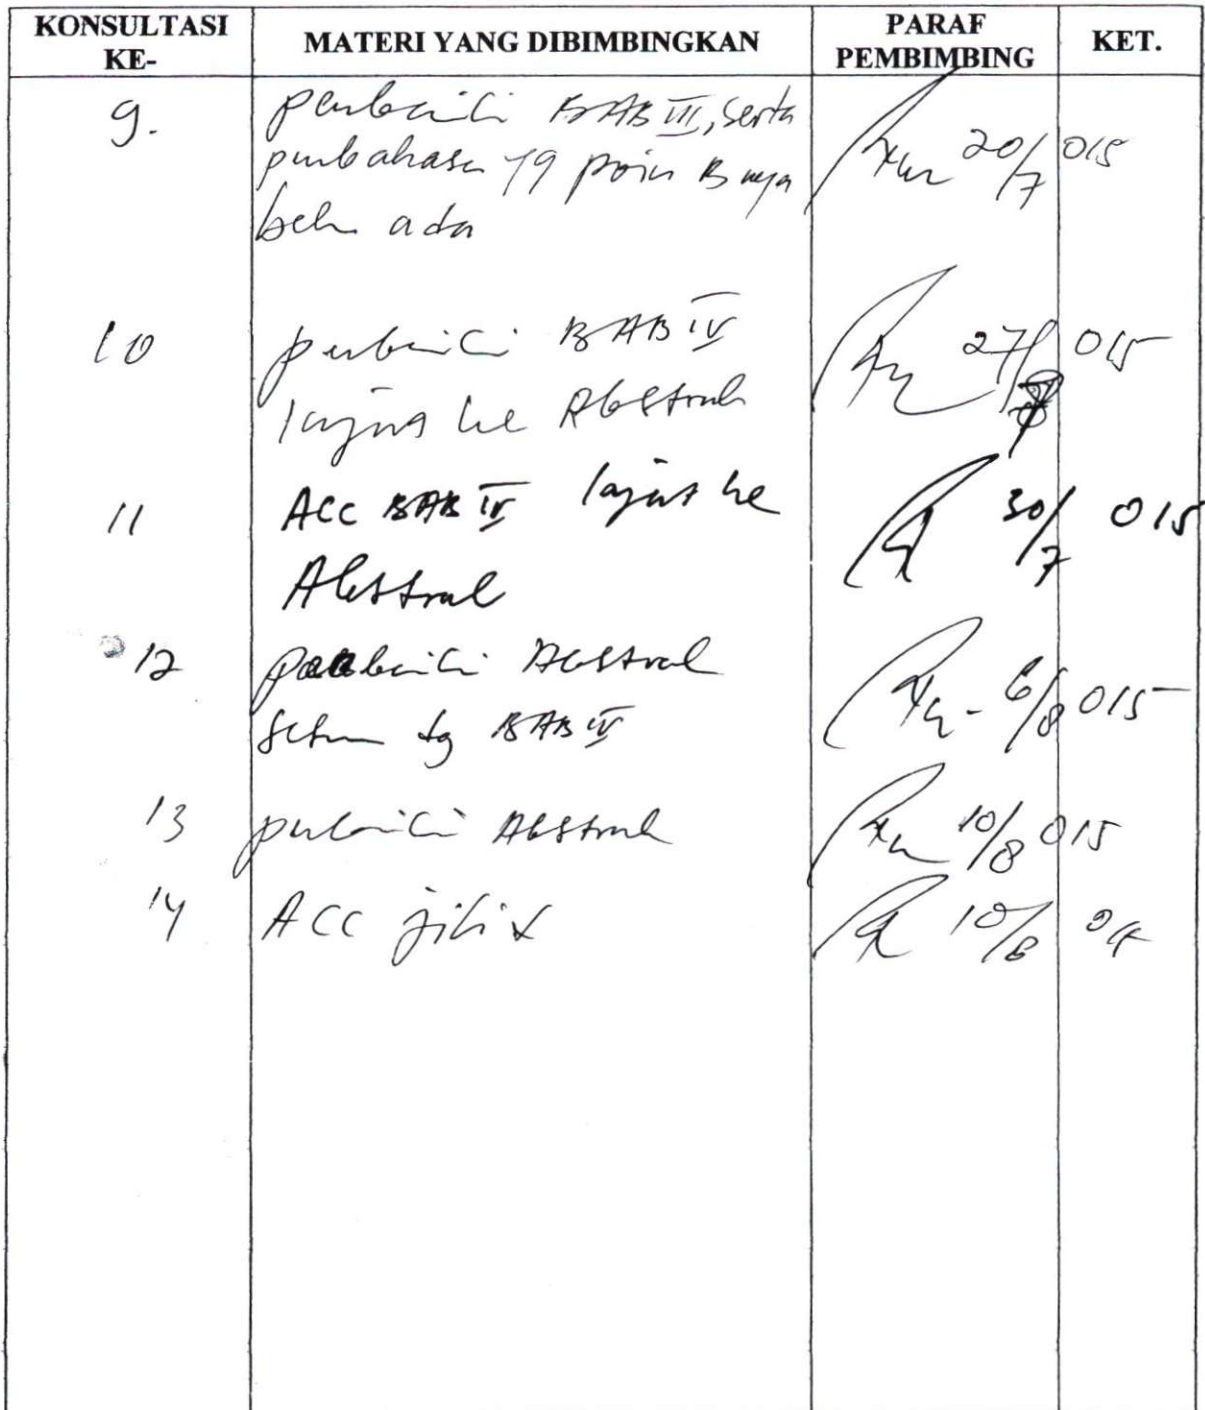 KONSULTASI KE- MATERI YANG DIBIMBINGKAN PARAF PEMBIMBING KET.
9. perbaiki BAB III, serta
pembahasan yg poin B nya 20/7 015
belum ada
10 perbaiki BAB IV 27/7 015
lanjut ke Abstrak
11 ACC BAB IV lanjut ke 30/7 015
Abstrak
12 perbaiki Abstrak
dg BAB IV 6/8 015
13 perbaiki Abstrak 10/8 015
14 ACC jilid 10/8